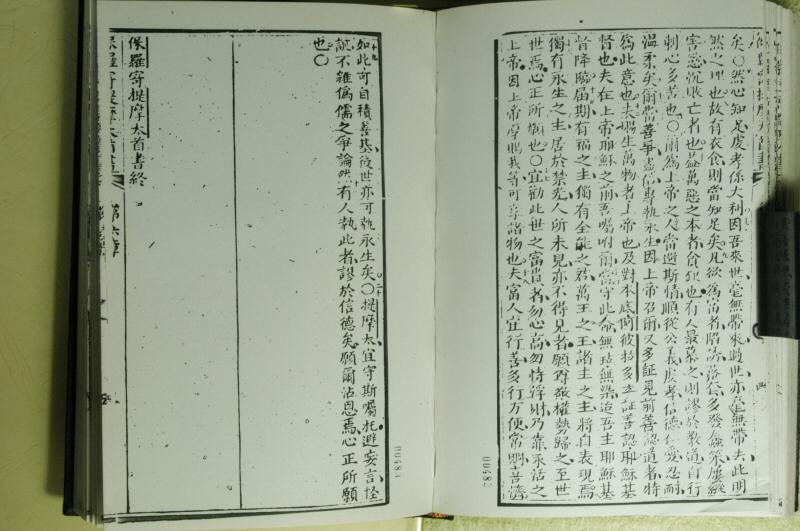 矣〇然心知足處孝係大利因吾來世毫無帶來過世亦毫無帶去此明
然之理也故有衣食則當知足矣凡欲爲富者陷
害慾沉敗亡者也蓋萬惡之本者貪財也有人最慕之則謬於教道自行
刺心多苦也〇爾爲上帝之人當避斯情順從公義處孝信德仁愛忍耐
溫柔矣爾當善爭盡信專執永生因上帝召爾又多証見前善認道者特
爲此意也夫賜生萬物者上帝也及對本底
督也夫在上帝耶穌之前吾囑咐爾當守此命無玷無染迨吾主耶穌基
督降臨屆期有福之主獨有全能之君萬王之王諸主之主將自表現焉
獨有永生之主居於禁光人所未見亦不得見者願尊敬權勢歸之至世
世焉心正所願也〇宜勸此世之富貴者勿心高勿恃浮財乃靠永活之
上帝因上帝厚賜我等可享諸物也夫富人宜行善多行方便常
00482
如此可自積善基後世亦可執永生矣〇提摩太宜守斯囑托避妄言怪
說不雜僞儒之爭論然有人執此者謬於信德矣願爾沾恩焉心正所願
也〇
保羅寄提摩太首書終
保羅寄提摩太首書
第六章
00483